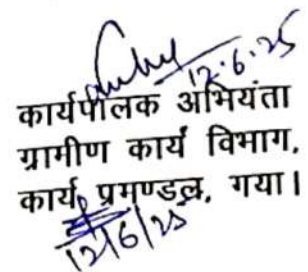 12.6.25
कार्यपालक अभियंता
ग्रामीण कार्य विभाग,
कार्य प्रमण्डल, गया।
12/6/25